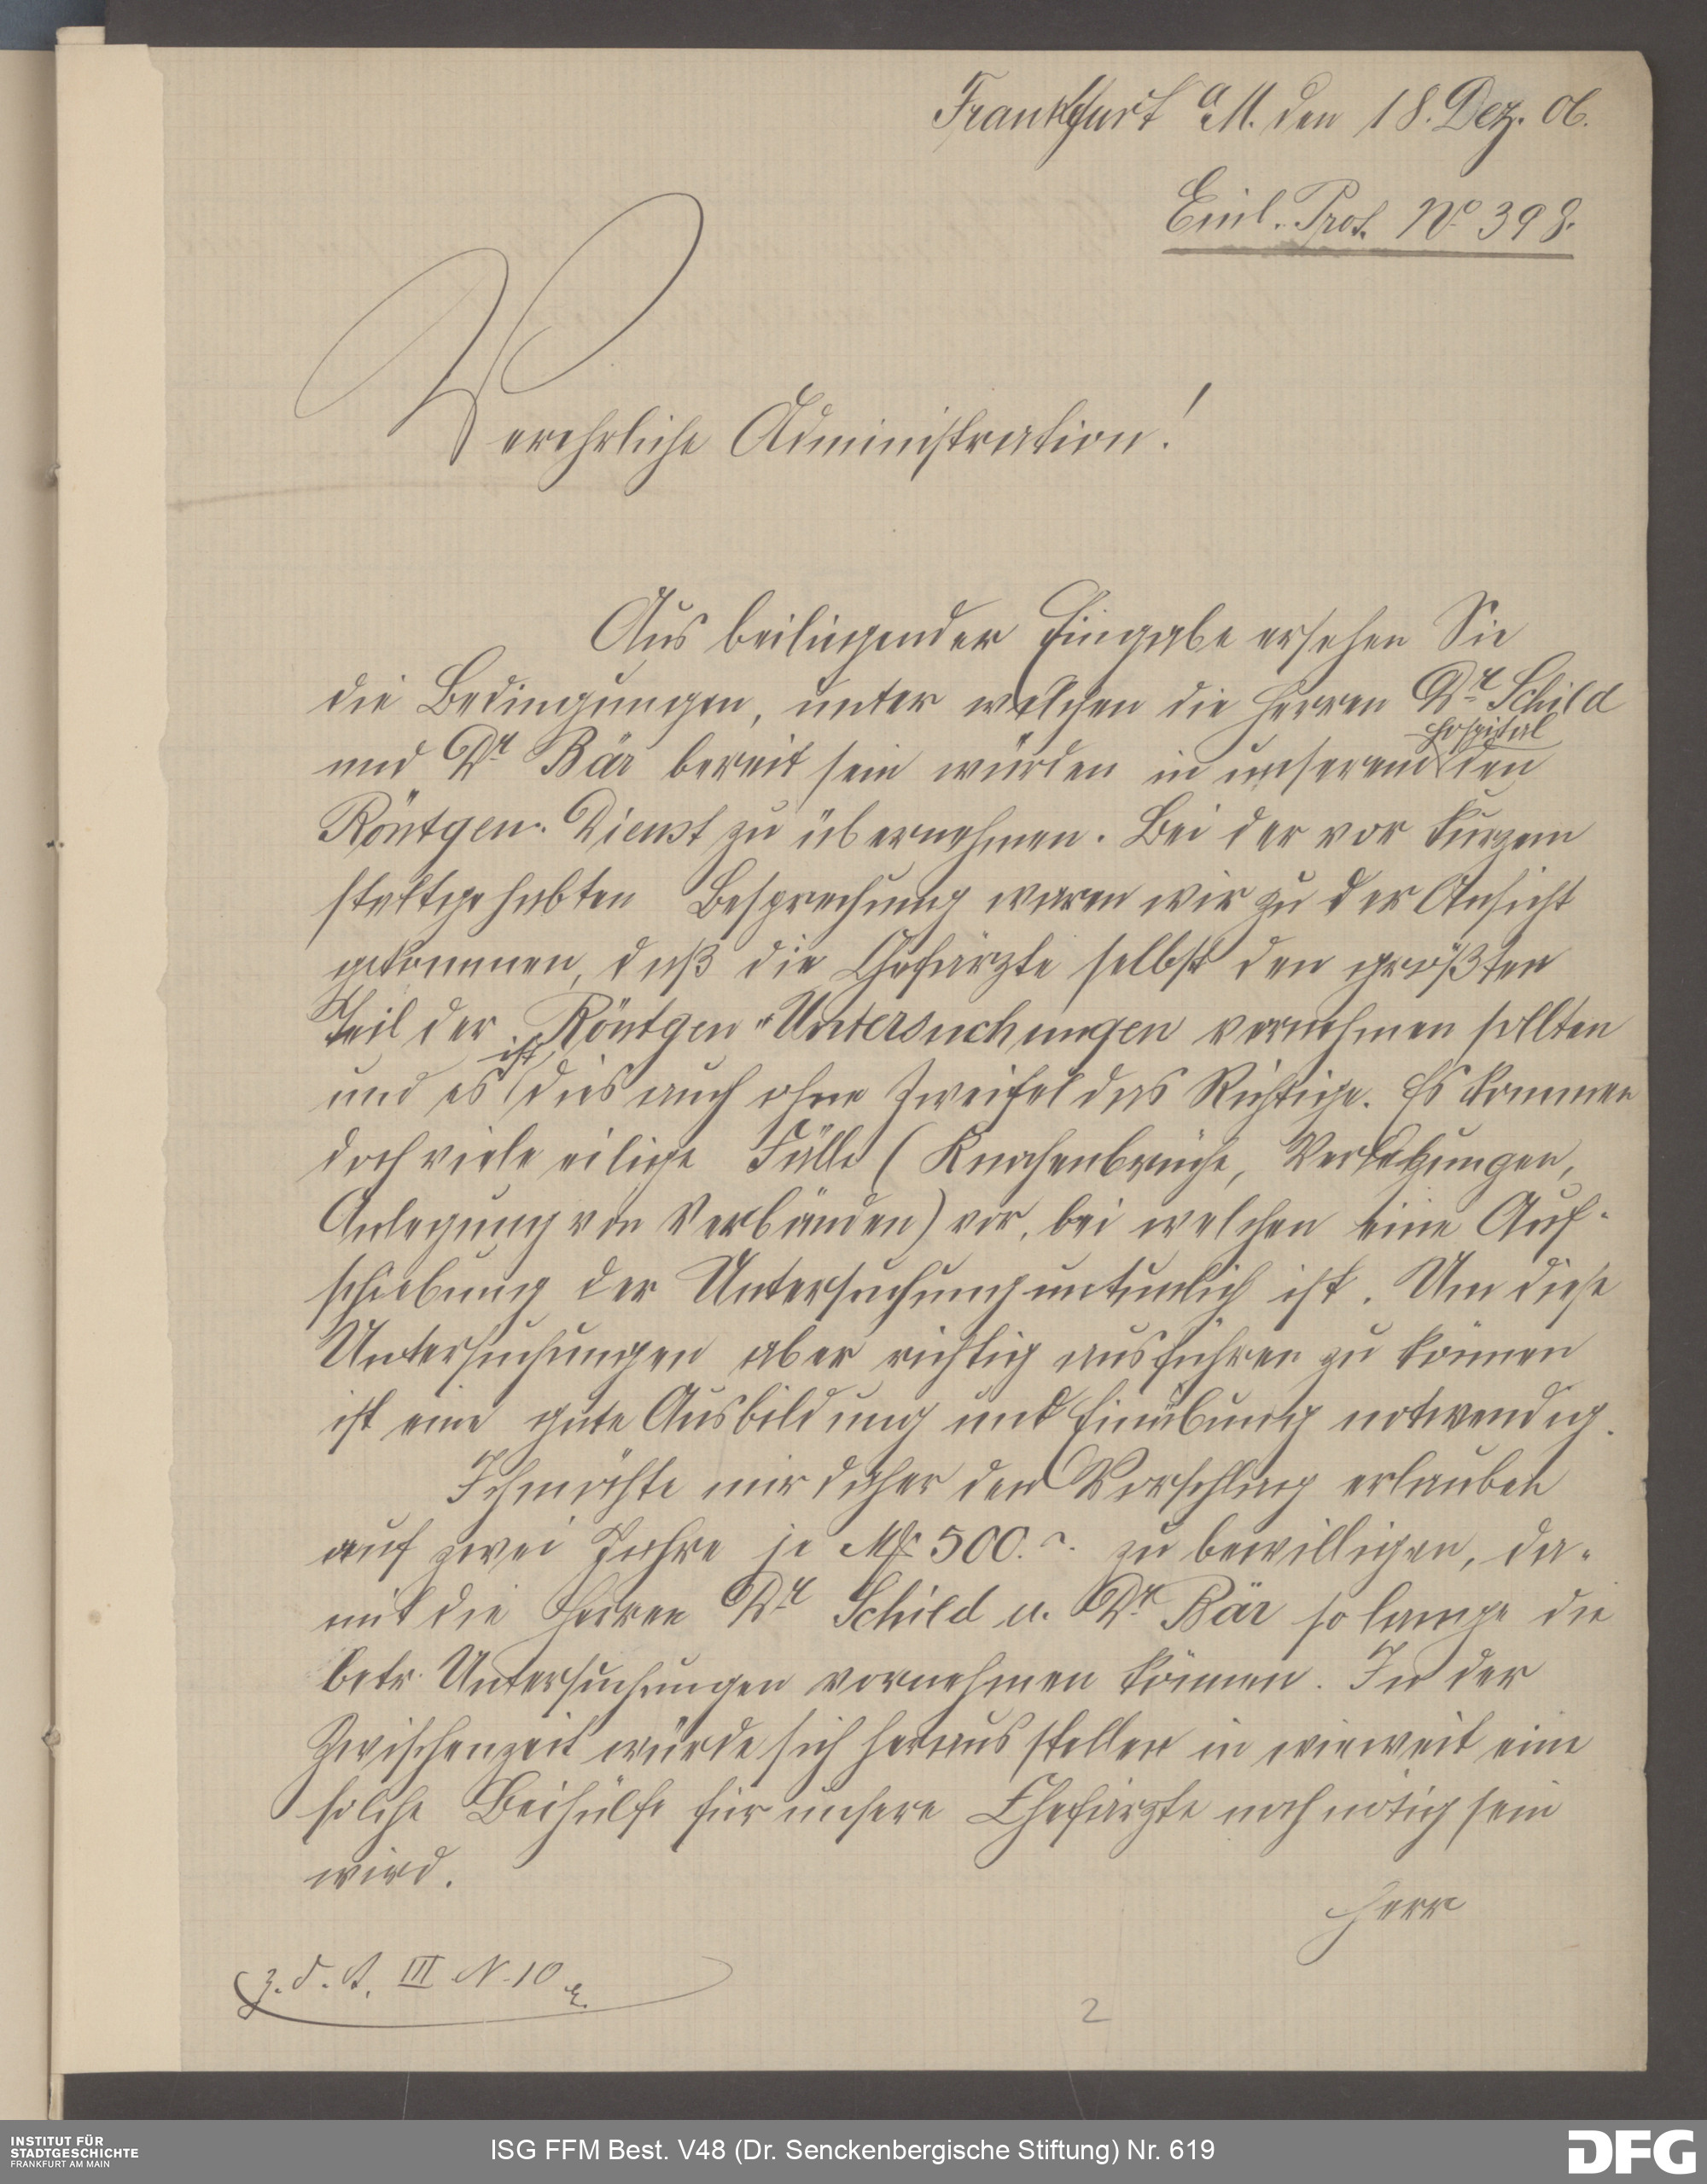 Frankfurt a/M. den 18. Dez. 06.
Einl. Prot. No 398.
Verehrliche Administration!
Aus beiliegender Eingabe ersehen Sie
die Bedingungen, unter welchen die Herren Dr Schild
und Dr Bär bereit sein würden in unserem Hospital den
Röntgen-Dienst zu übernehmen. Bei der vor kurzem
stattgehabten Besprechung waren wir zu der Ansicht
gekommen, daß die Chefärzte selbst den größten
Teil der Röntgen-Untersuchungen vornehmen sollten
und es ist dies auch ohne Zweifel das Richtige. Es kommen
doch viele eilige Fälle (Knochenbrüche, Verletzungen,
Anlegung von Verbänden) vor, bei welchen eine Auf-
schiebung der Untersuchung untunlich ist. Um diese
Untersuchungen aber richtig ausführen zu können
ist eine gute Ausbildung und Einübung notwendig.
Ich möchte mir daher den Vorschlag erlauben
auf zwei Jahre je Mk 500.-. zu bewilligen, da-
mit die Herren Dr Schild u. Dr Bär so lange die
betr. Untersuchungen vornehmen können. In der
Zwischenzeit würde sich herausstellen in wieweit eine
solche Beihülfe für unsere Chefärzte noch nötig sein
wird.
Herr
z. d. A. III N. 10
2
INSTITUT FÜR
STADTGESCHICHTE
FRANKFURT AM MAIN
ISG FFM Best. V48 (Dr. Senckenbergische Stiftung) Nr. 619
DFG